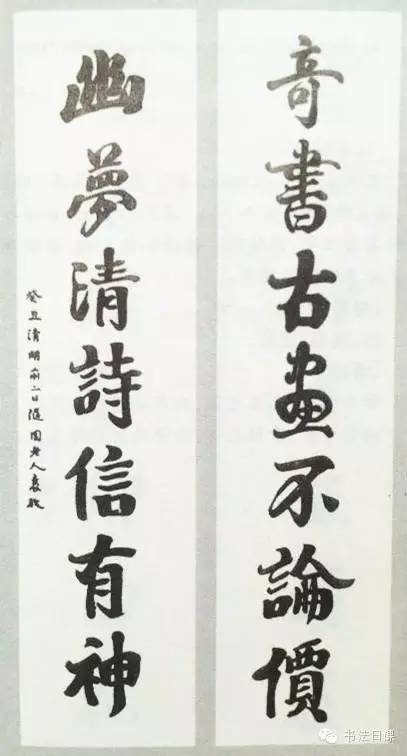 奇書古畫不論價
幽夢清詩信有神
癸丑清明前二日隨園老人袁枚
书法日课